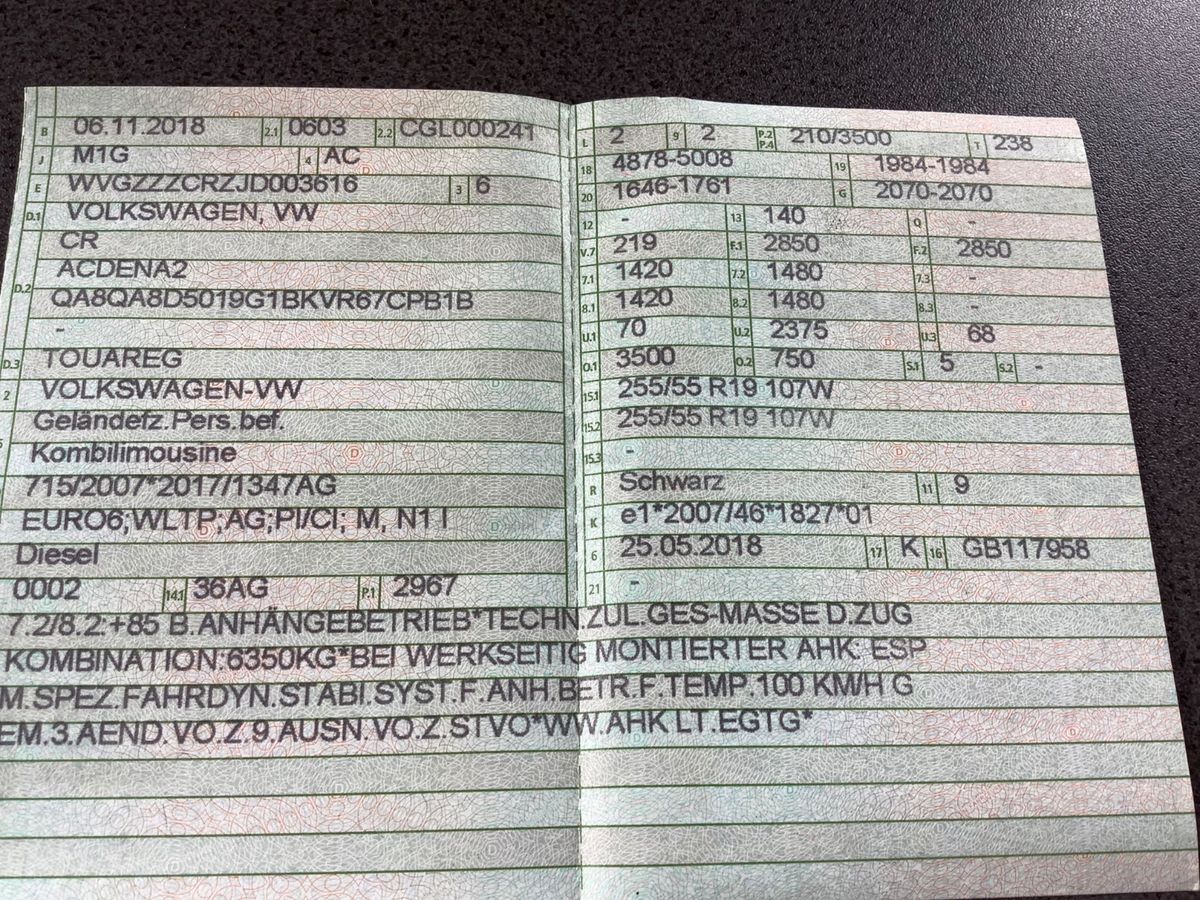 B 06.11.2018 2.1 0603 2.2 CGL000241
J M1G 4 AC
E WVGZZZCRZJD003616 3 6
D.1 VOLKSWAGEN, VW
CR
D.2 ACDENA2
QA8QA8D5019G1BKVR67CPB1B
-
D.3 TOUAREG
2 VOLKSWAGEN-VW
5 Geländefz.Pers.bef.
Kombilimousine
715/2007*2017/1347AG
EURO6;WLTP;AG;PI/CI; M, N1 I
Diesel
0002 14.1 36AG P.1 2967
L 2 9 2 P.2 P.4 210/3500 T 238
18 4878-5008 19 1984-1984
20 1646-1761 G 2070-2070
12 - 13 140 Q -
V.7 219 F.1 2850 F.2 2850
7.1 1420 7.2 1480 7.3 -
8.1 1420 8.2 1480 8.3 -
U.1 70 U.2 2375 U.3 68
O.1 3500 O.2 750 S.1 5 S.2 -
15.1 255/55 R19 107W
15.2 255/55 R19 107W
15.3 -
R Schwarz 11 9
K e1*2007/46*1827*01
6 25.05.2018 17 K 16 GB117958
21 -
7.2/8.2:+85 B.ANHÄNGEBETRIEB*TECHN.ZUL.GES-MASSE D.ZUG
KOMBINATION:6350KG*BEI WERKSEITIG MONTIERTER AHK: ESP
M.SPEZ.FAHRDYN.STABI.SYST.F.ANH.BETR.F.TEMP.100 KM/H G
EM.3.AEND.VO.Z.9.AUSN.VO.Z.STVO*WW.AHK LT.EGTG*